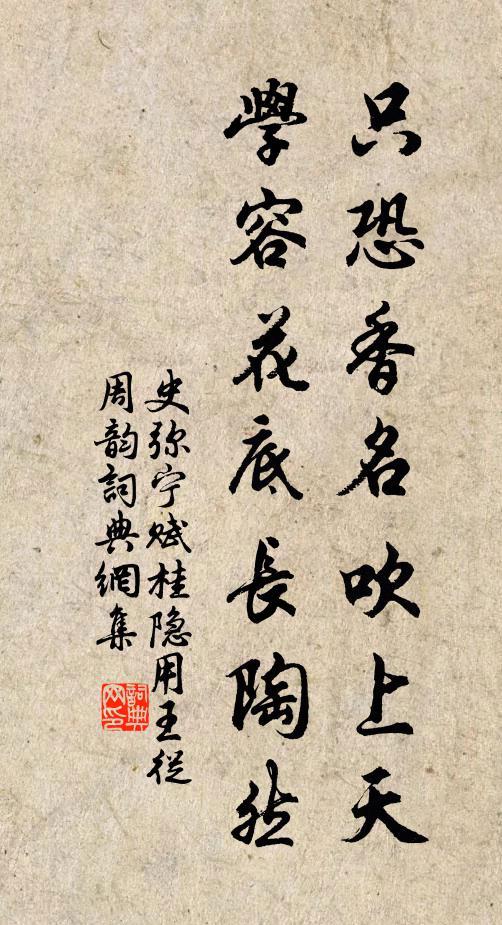 只恐香名吹上天
學容花底長陶然
史弥宁赋桂隐用王從
周韵詞典網集
詞典网印